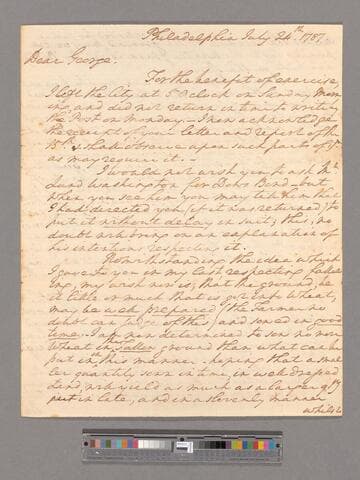 Philadelphia July 24th 1787.
Dear George.
For the benefit of exercise,
I left the City at 5 Oclock on Sunday Morn
ing, and did not return in time to write by
the Post on Monday. — I now acknowledge
the receipt of your letter and report of the
15th & shall observe upon such parts of it
as may require it. —
I would not wish you to ask Mr
Lund Washington for Bond — but
when you see him you may tell him that
I had directed you (if it was returned) to
put it without delay in suit; this, no
doubt will bring on an explanation of
his intentions respecting it.
Notwithstanding the idea which
I gave to you in my last respecting fallow
ing, my wish now is, that the ground, be
it little or much that is got into Wheat,
may be well prepared (the Farmer no
doubt can judge of this) and sowed in good
time. I am determined to sow no more
Wheat in fallow ground than what can be
put in in this manner; hoping that a smal
ler quantity sown in time, in well dressed
Land, will yield as much as a larger qty
put in late, and in a slovenly manner
whilst